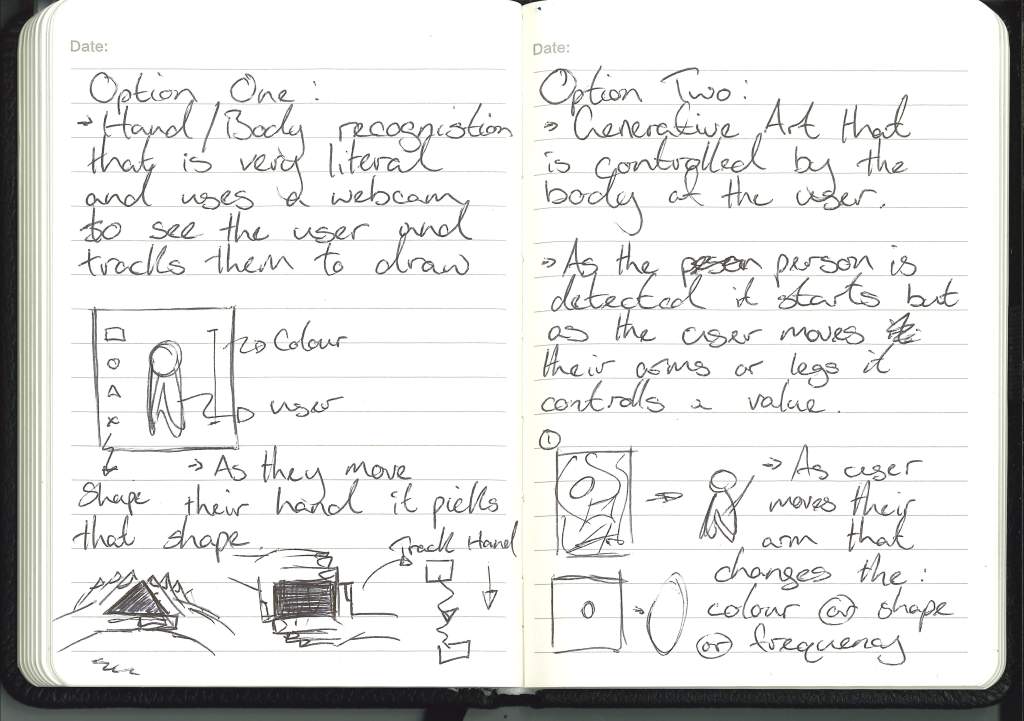 Date:
Option One:
→ Hand/Body recognistion
that is very literal
and uses a webcam
to see the user and
tracks them to draw
Colour
user
→ As they move
Shape their hand it picks
that shape.
Track Hand
Date:
Option Two:
→ Generative Art that
is controlled by the
body of the user.
→ As the person is
detected it starts but
as the user moves
their arms or legs it
controlls a value.
①
→ As user
moves their
arm that
changes the:
colour or shape
or frequency